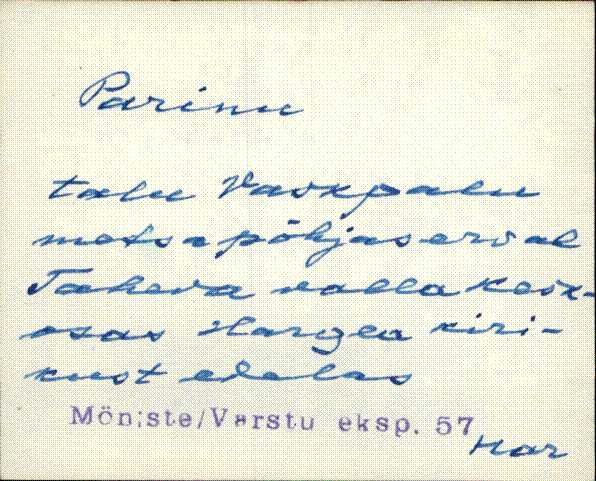 Parinu
talu Vaskpalu
metsa põhjaserval
Taheva valla kesk-
osas Hargla kiri-
kust edelas
Mõniste/Varstu eksp. 57
Har